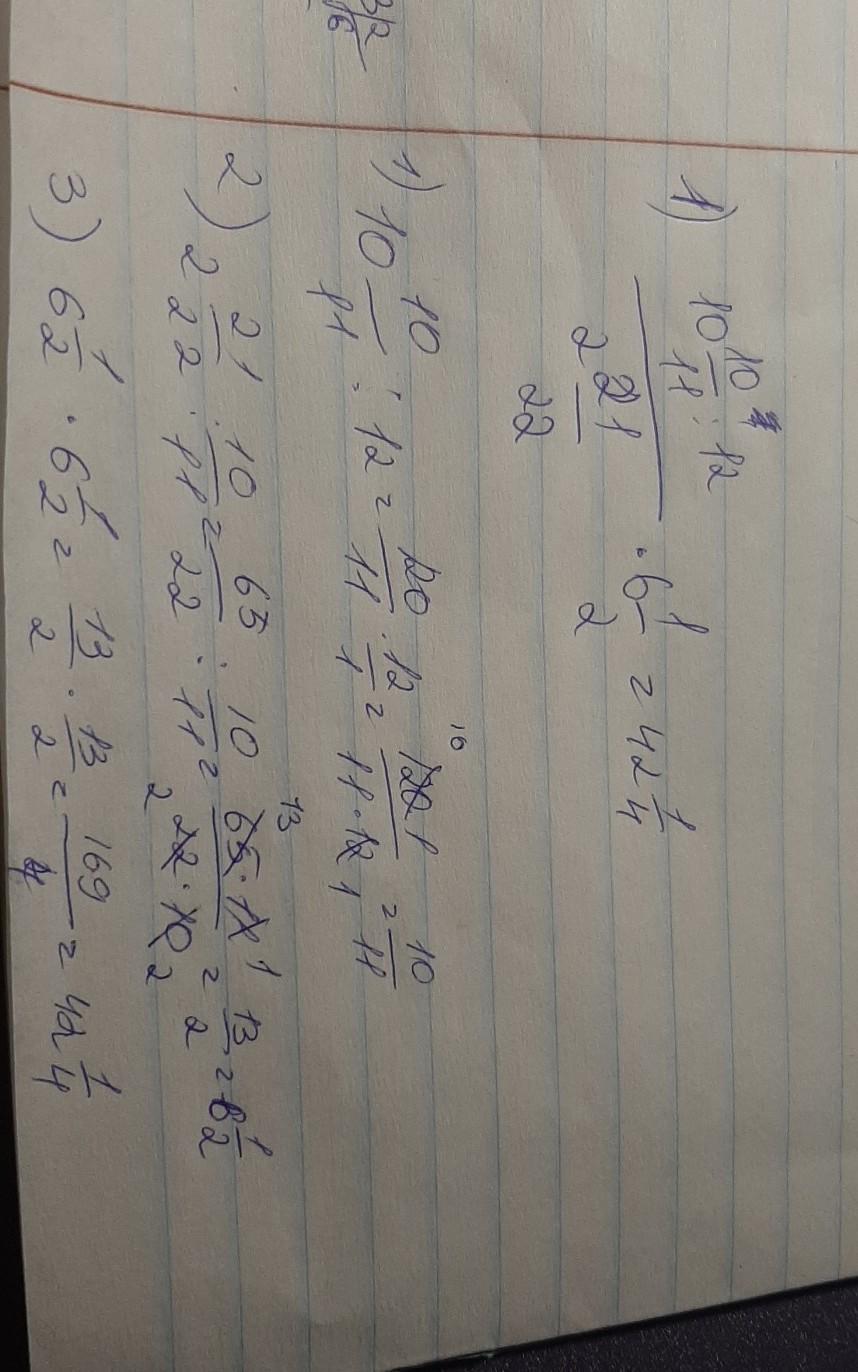 32/16
1) (10 10/11 : 12) / (2 21/22) · 6 1/2 = 42 1/4
1) 10 10/11 : 12 = 120/11 : 12/1 = 120 · 1 / 11 · 12 = 10/11
2) 2 21/22 : 10/11 = 65/22 : 10/11 = 65 · 11 / 22 · 10 = 13/2 = 6 1/2
3) 6 1/2 · 6 1/2 = 13/2 · 13/2 = 169/4 = 42 1/4